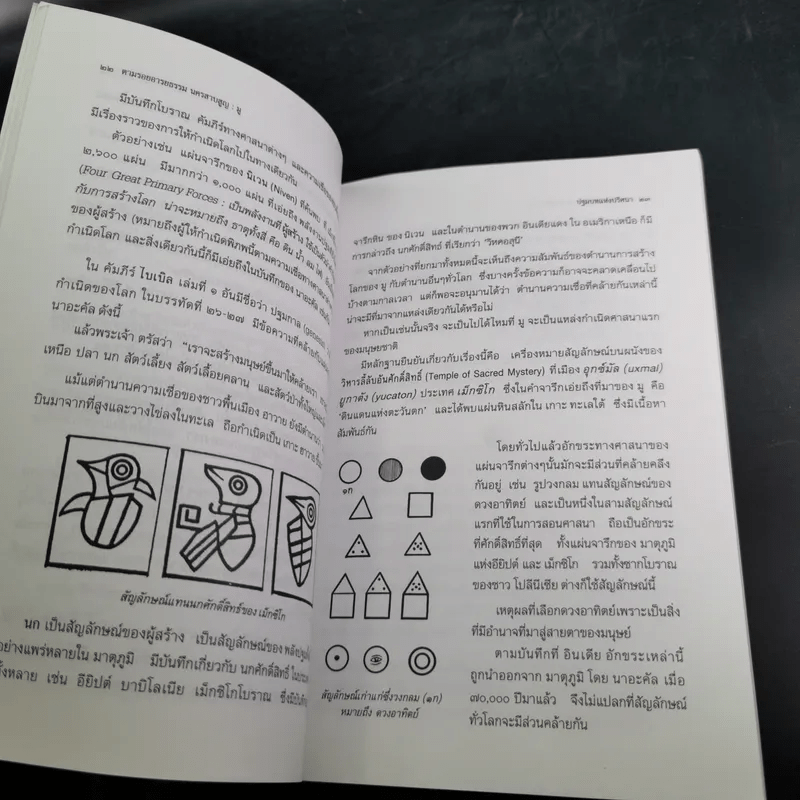 ๒๒ ตามรอยอารยธรรม นครสาบสูญ : มู
มีบันทึกโบราณ คัมภีร์ทางศาสนาต่างๆ
มีเรื่องราวของการให้กำเนิดโลกไปในทางเดียวกัน
ตัวอย่างเช่น แผ่นจารึกของ นิเวน (Niven) ที่ค้นพบ
๒,๖๐๐ แผ่น มีมากกว่า ๑,๐๐๐ แผ่น ที่เอ่ยถึง
(Four Great Primary Forces : เป็นพลังงานที่ ผู้สร้าง ใช้
กับการสร้างโลก น่าจะหมายถึง ธาตุทั้งสี่ คือ ดิน น้ำ ลม ไฟ)
ของผู้สร้าง (หมายถึงผู้ให้กำเนิดพิภพนี้ตามความเชื่อทางศาสนา)
กำเนิดโลก และสิ่งเดียวกันนี้ก็มีเอ่ยถึงในบันทึกของ นาอะคัล
ใน คัมภีร์ ไบเบิล เล่มที่ ๑ อันมีชื่อว่า ปฐมกาล
กำเนิดของโลก ในบรรทัดที่ ๒๖-๒๗ มีข้อความที่คล้ายกัน
นาอะคัล ดังนี้
แล้วพระเจ้า ตรัสว่า "เราจะสร้างมนุษย์ขึ้นมาให้คล้ายเรา
เหนือ ปลา นก สัตว์เลี้ยง สัตว์เลื้อยคลาน และสัตว์ป่าทั้งใหญ่
แม้แต่ตำนานความเชื่อของชาวพื้นเมือง ฮาวาย ยังมีตำนาน
บินมาจากที่สูงและวางไข่ลงในทะเล ถือกำเนิดเป็น เกาะ ฮาวาย
สัญลักษณ์แทนนกศักดิ์สิทธิ์ของ เม็กซิโก
นก เป็นสัญลักษณ์ของผู้สร้าง เป็นสัญลักษณ์ของ
อย่างแพร่หลายใน มาตุภูมิ มีบันทึกเกี่ยวกับ นกศักดิ์สิทธิ์
ทั้งหลาย เช่น อียิปต์ บาบิโลเนีย เม็กซิโกโบราณ
ปฐมบทแห่งปริศนา ๒๓
จารึกหิน ของ นิเวน และในตำนานของพวก อินเดียแดง ใน อเมริกาเหนือ ก็มี
การกล่าวถึง นกศักดิ์สิทธิ์ ที่เรียกว่า 'วิหคอสุนี'
จากตัวอย่างที่ยกมาทั้งหมดนี้จะเห็นถึงความสัมพันธ์ของตำนานการสร้าง
โลกของ มู กับตำนานอื่นๆทั่วโลก ซึ่งบางครั้งข้อความก็อาจจะคลาดเคลื่อนไป
บ้างตามกาลเวลา แต่ก็พอจะอนุมานได้ว่า ตำนานความเชื่อที่คล้ายกันเหล่านี้
น่าจะมีที่มาจากแหล่งเดียวกันได้หรือไม่
หากเป็นเช่นนั้นจริง จะเป็นไปได้ไหมที่ มู จะเป็นแหล่งกำเนิดศาสนาแรก
ของมนุษยชาติ
มีหลักฐานยืนยันเกี่ยวกับเรื่องนี้คือ เครื่องหมายสัญลักษณ์บนผนังของ
วิหารลี้ลับอันศักดิ์สิทธิ์ (Temple of Sacred Mystery) ที่เมือง อุกซ์มัล (uxmal)
ยูกาตัง (yucaton) ประเทศ เม็กซิโก ซึ่งในคำจารึกเอ่ยถึงที่มาของ มู คือ
'ดินแดนแห่งตะวันตก' และได้พบแผ่นหินสลักใน เกาะ ทะเลใต้ ซึ่งมีเนื้อหา
สัมพันธ์กัน
โดยทั่วไปแล้วอักขระทางศาสนาของ
แผ่นจารึกต่างๆนั้นมักจะมีส่วนที่คล้ายคลึง
กันอยู่ เช่น รูปวงกลม แทนสัญลักษณ์ของ
ดวงอาทิตย์ และเป็นหนึ่งในสามสัญลักษณ์
แรกที่ใช้ในการสอนศาสนา ถือเป็นอักขระ
ที่ศักดิ์สิทธิ์ที่สุด ทั้งแผ่นจารึกของ มาตุภูมิ
แห่งอียิปต์ และ เม็กซิโก รวมทั้งซากโบราณ
ของชาว โปลินีเซีย ต่างก็ใช้สัญลักษณ์นี้
เหตุผลที่เลือกดวงอาทิตย์เพราะเป็นสิ่ง
ที่มีอำนาจที่มาสู่สายตาของมนุษย์
ตามบันทึกที่ อินเดีย อักขระเหล่านี้
ถูกนำออกจาก มาตุภูมิ โดย นาอะคัล เมื่อ
๗๐,๐๐๐ ปีมาแล้ว จึงไม่แปลกที่สัญลักษณ์
ทั่วโลกจะมีส่วนคล้ายกัน
๑ก
สัญลักษณ์เก่าแก่ซึ่งวงกลม (๑ก)
หมายถึง ดวงอาทิตย์